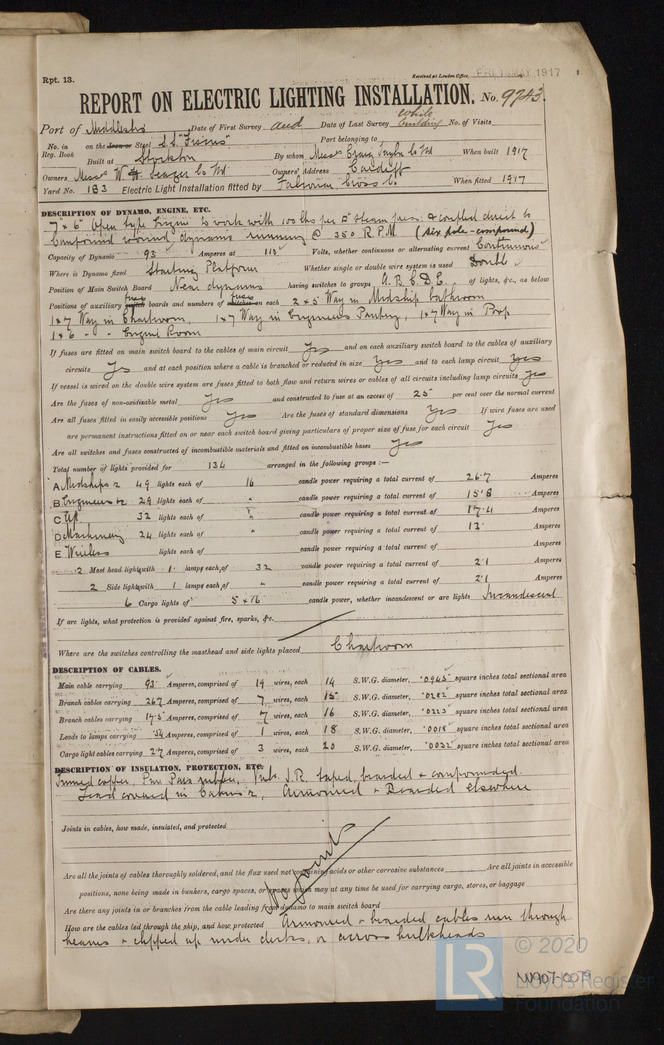 Rpt. 13.
Received at London Office FRI. MAY 1917
REPORT ON ELECTRIC LIGHTING INSTALLATION. No. 9743.
Port of Middlesbro Date of First Survey and Date of Last Survey while building No. of Visits
No. in Reg. Book on the Iron or Steel S.S. Port belonging to
Built at Stockton By whom Messrs Craig Taylor Co Ltd When built 1917
Owners Messrs W. H. Seager Co Ltd Owners' Address Cardiff
Yard No. 183 Electric Light Installation fitted by Falconer Cross Co. When fitted 1917
DESCRIPTION OF DYNAMO, ENGINE, ETC.
7" x 6" Open type Engine to work with 100 lbs per □" steam press: & coupled direct to
Compound wound dynamo running @ 350 R.P.M. (six pole-compound)
Capacity of Dynamo 93 Amperes at 110 Volts, whether continuous or alternating current Continuous
Where is Dynamo fixed Starting Platform Whether single or double wire system is used Double
Position of Main Switch Board Near dynamo having switches to groups A. B. C. D. E. of lights, &c., as below
Positions of auxiliary switch fuse boards and numbers of switches fuses on each 2 x 5 Way in Midship bathroom
1 x 7 Way in Chartroom, 1 x 7 Way in Engineers Pantry, 1 x 7 Way in Poop
1 x 6 - " - Engine Room
If fuses are fitted on main switch board to the cables of main circuit Yes and on each auxiliary switch board to the cables of auxiliary
circuits Yes and at each position where a cable is branched or reduced in size Yes and to each lamp circuit Yes
If vessel is wired on the double wire system are fuses fitted to both flow and return wires or cables of all circuits including lamp circuits Yes
Are the fuses of non-oxidizable metal Yes and constructed to fuse at an excess of 25 per cent over the normal current
Are all fuses fitted in easily accessible positions Yes Are the fuses of standard dimensions Yes If wire fuses are used
are permanent instructions fitted on or near each switch board giving particulars of proper size of fuse for each circuit Yes
Are all switches and fuses constructed of incombustible materials and fitted on incombustible bases Yes
Total number of lights provided for 134 arranged in the following groups :—
A Midships 49 lights each of 16 candle power requiring a total current of 26.7 Amperes
B Engineers 29 lights each of " candle power requiring a total current of 15.8 Amperes
C Aft 32 lights each of " candle power requiring a total current of 17.4 Amperes
D Machinery 24 lights each of " candle power requiring a total current of 13. Amperes
E Wireless lights each of candle power requiring a total current of Amperes
2 Mast head lights with 1 lamps each of 32 candle power requiring a total current of 2.1 Amperes
2 Side lights with 1 lamps each of " candle power requiring a total current of 2.1 Amperes
6 Cargo lights of 5 x 16 candle power, whether incandescent or arc lights Incandescent
If arc lights, what protection is provided against fire, sparks, &c.
Where are the switches controlling the masthead and side lights placed Chartroom
DESCRIPTION OF CABLES.
Main cable carrying 93 Amperes, comprised of 19 wires, each 14 S.W.G. diameter, .0945 square inches total sectional area
Branch cables carrying 26.7 Amperes, comprised of 7 wires, each 15 S.W.G. diameter, .0282 square inches total sectional area
Branch cables carrying 17.5 Amperes, comprised of 7 wires, each 16 S.W.G. diameter, .0223 square inches total sectional area
Leads to lamps carrying .54 Amperes, comprised of 1 wires, each 18 S.W.G. diameter, .0018 square inches total sectional area
Cargo light cables carrying 2.7 Amperes, comprised of 3 wires, each 20 S.W.G. diameter, .0032 square inches total sectional area
DESCRIPTION OF INSULATION, PROTECTION, ETC.
Tinned copper, Pure Para rubber, Vulc. I.R. taped, braided & compounded.
Lead covered in Cabins, Armoured & Braided elsewhere
Joints in cables, how made, insulated, and protected
No joints
Are all the joints of cables thoroughly soldered, and the flux used not containing acids or other corrosive substances Are all joints in accessible
positions, none being made in bunkers, cargo spaces, or spaces which may at any time be used for carrying cargo, stores, or baggage
Are there any joints in or branches from the cable leading from dynamo to main switch board
How are the cables led through the ship, and how protected Armoured & braided cables run through
beams & clipped up under decks, or across bulkheads
© 2020
LR Lloyd's Register Foundation
W907-0079